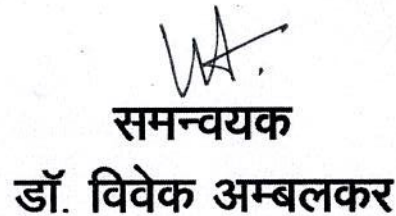 समन्वयक
डॉ. विवेक अम्बलकर